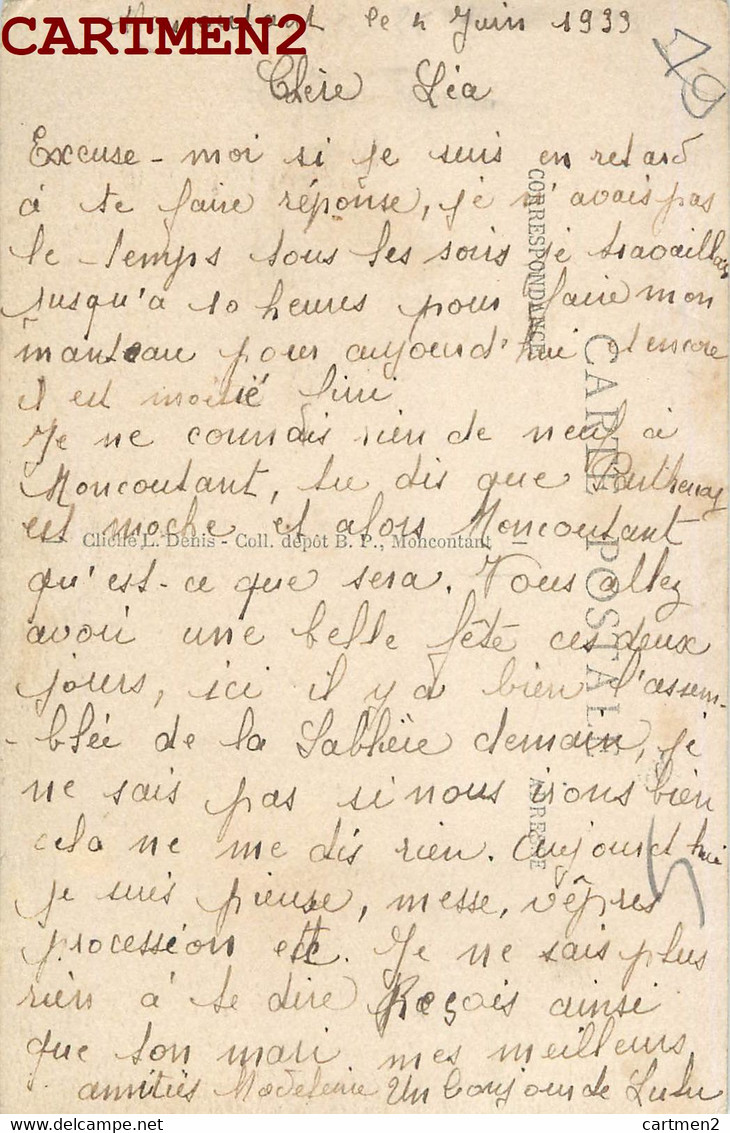 CARTMEN2
Moncoutant le 4 Juin 1933
Chère Léa
Excuse-moi si je suis en retard
à te faire réponse, je n'avais pas
le temps tous les soirs je travaillais
jusqu'à 10 heures pour faire mon
manteau pour aujourd'hui et encore
il est moitié fini
Je ne connais rien de neuf à
Moncoutant, tu dis que Parthenay
est moche et alors Moncoutant
qu'est-ce que sera. Vous allez
avoir une belle fête ces deux
jours, ici il y a bien l'assem-
-blée de la demain, je
ne sais pas si nous irons bien
cela ne me dis rien. Aujourd'hui
je suis pieuse, messe, vêpres
procession etc. Je ne sais plus
rien à te dire Reçois ainsi
que ton mari mes meilleurs
amitiés Madeleine Un bonjour de Lulu
CORRESPONDANCE
CARTE POSTALE
ADRESSE
Cliché L. Denis - Coll. dépôt B. P., Moncontant
cartmen2